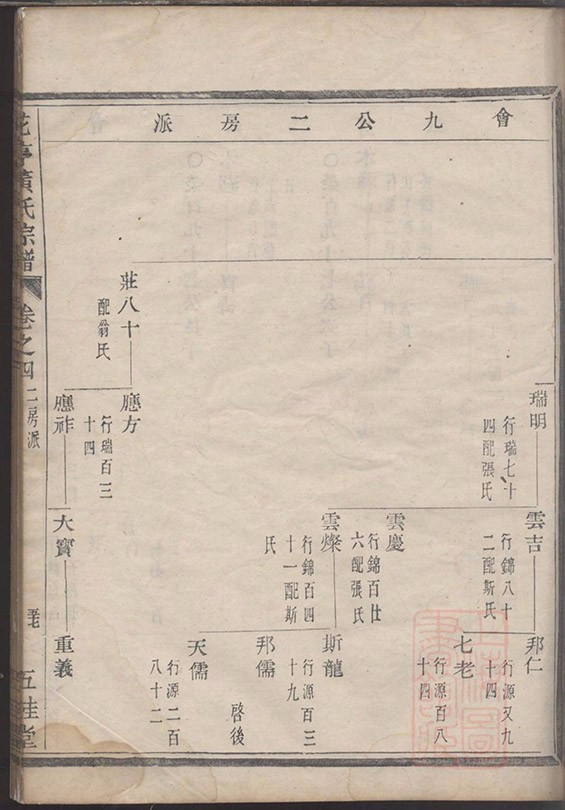 會九公二房派
瑞明
行瑞七十
四配張氏
雲吉
行錦八十
二配斯氏
邦仁
行源又九
十四
七老
行源百八
十四
雲慶
行錦百廿
六配張氏
雲燦
行錦百四
十一配斯
氏
斯龍
行源百三
十九
邦儒
啓後
天儒
行源二百
八十二
莊八十
配翁氏
應方
行瑞百三
十四
應祚
大寶
重義
黃氏宗譜
卷之四
二房派
五桂堂